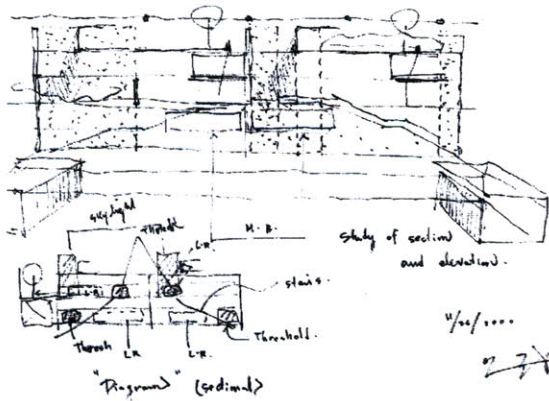 skylight
Threshold
L.R.
M.B.
Study of section
and elevation.
L.R.
stairs
Thresh
L.R.
L.R.
Threshold.
"Diagram" (sectional)